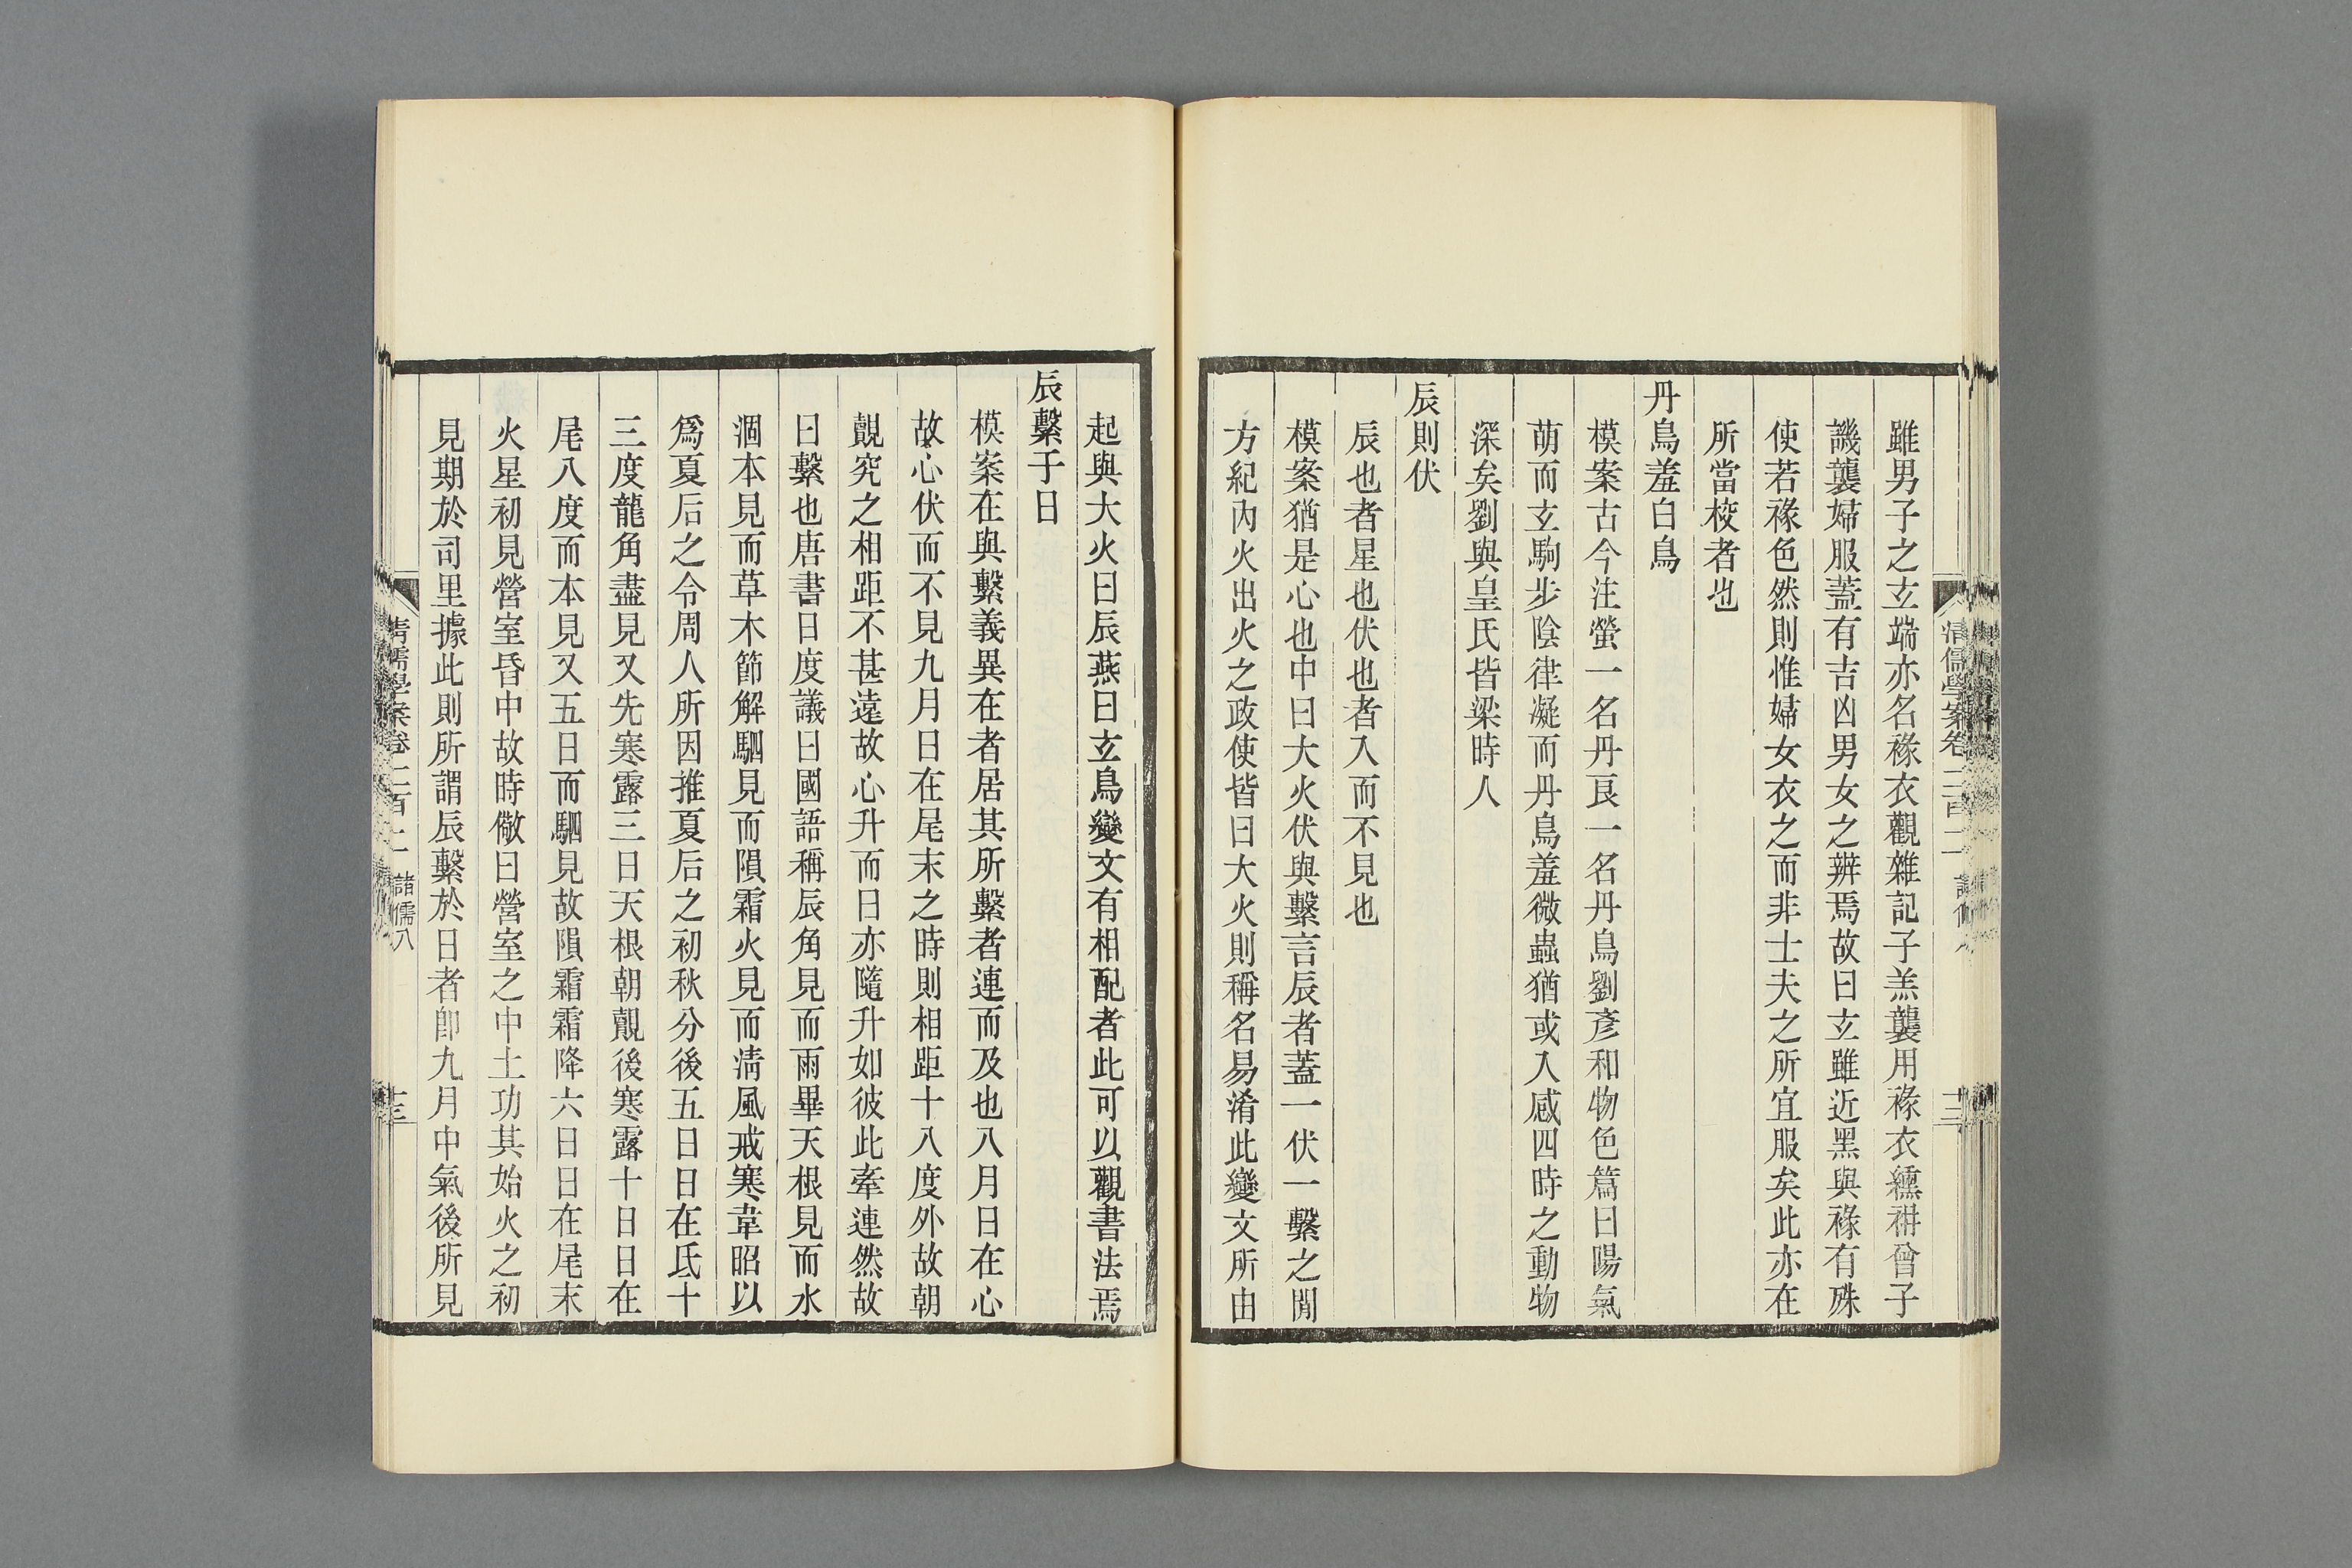 雖男子之玄端亦名褖衣觀雜記子羔襲用褖衣纁袡曾子
譏襲婦服蓋有吉凶男女之辨焉故曰玄雖近黑與褖有殊
使若褖色然則惟婦女衣之而非士夫之所宜服矣此亦在
所當校者也
丹鳥羞白鳥
模案古今注螢一名丹良一名丹鳥劉彥和物色篇曰陽氣
萌而玄駒步陰律凝而丹鳥羞微蟲猶或入感四時之動物
深矣劉與皇氏皆梁時人
辰則伏
辰也者星也伏也者入而不見也
模案猶是心也中曰大火伏與繫言辰者蓋一伏一繫之閒
方紀內火出火之政使皆曰大火則稱名易淆此變文所由
起與大火曰辰燕曰玄鳥變文有相配者此可以觀書法焉
辰繫于日
模案在與繫義異在者居其所繫者連而及也八月日在心
故心伏而不見九月日在尾末之時則相距十八度外故朝
覿究之相距不甚遠故心升而日亦隨升如彼此牽連然故
曰繫也唐書日度議曰國語稱辰角見而雨畢天根見而水
涸本見而草木節解駟見而隕霜火見而清風戒寒韋昭以
為夏后之令周人所因推夏后之初秋分後五日日在氐十
三度龍角盡見又先寒露三日天根朝覿後寒露十日日在
尾八度而本見又五日而駟見故隕霜霜降六日日在尾末
火星初見營室昏中故時儆曰營室之中土功其始火之初
見期於司里據此則所謂辰繫於日者卽九月中氣後所見
清儒學案卷二百二 諸儒八
十三